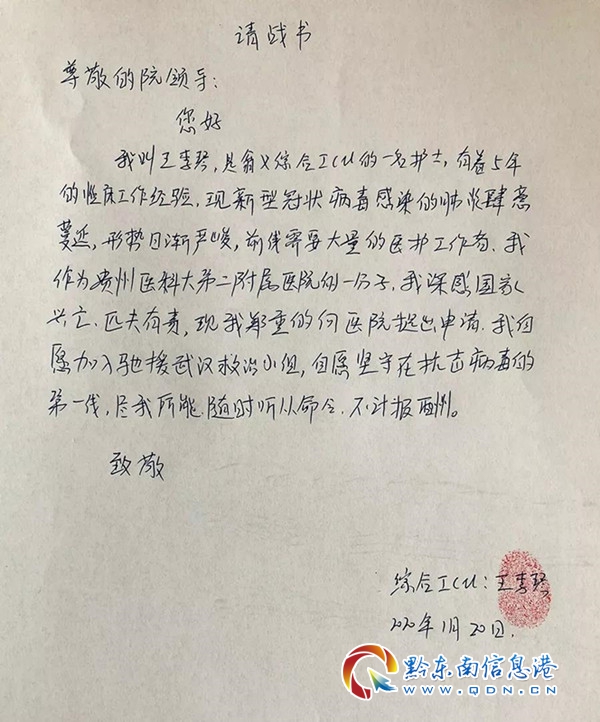 请战书
尊敬的院领导：
您好
我叫王李琴，是翁义综合ICU的一名护士，有着5年
的临床工作经验，现新型冠状病毒感染的肺炎肆意
蔓延，形势日渐严峻，前线需要大量的医护工作者，我
作为贵州医科大第二附属医院的一份子，我深感国家
兴亡、匹夫有责，现我郑重的向医院提出申请，我自
愿加入驰援武汉救治小组，自愿坚守在抗击病毒的
第一线，尽我所能，随时听从命令、不计报酬。
致敬
综合ICU：王李琴
2020年1月20日.
黔东南信息港
www.QDN.cn